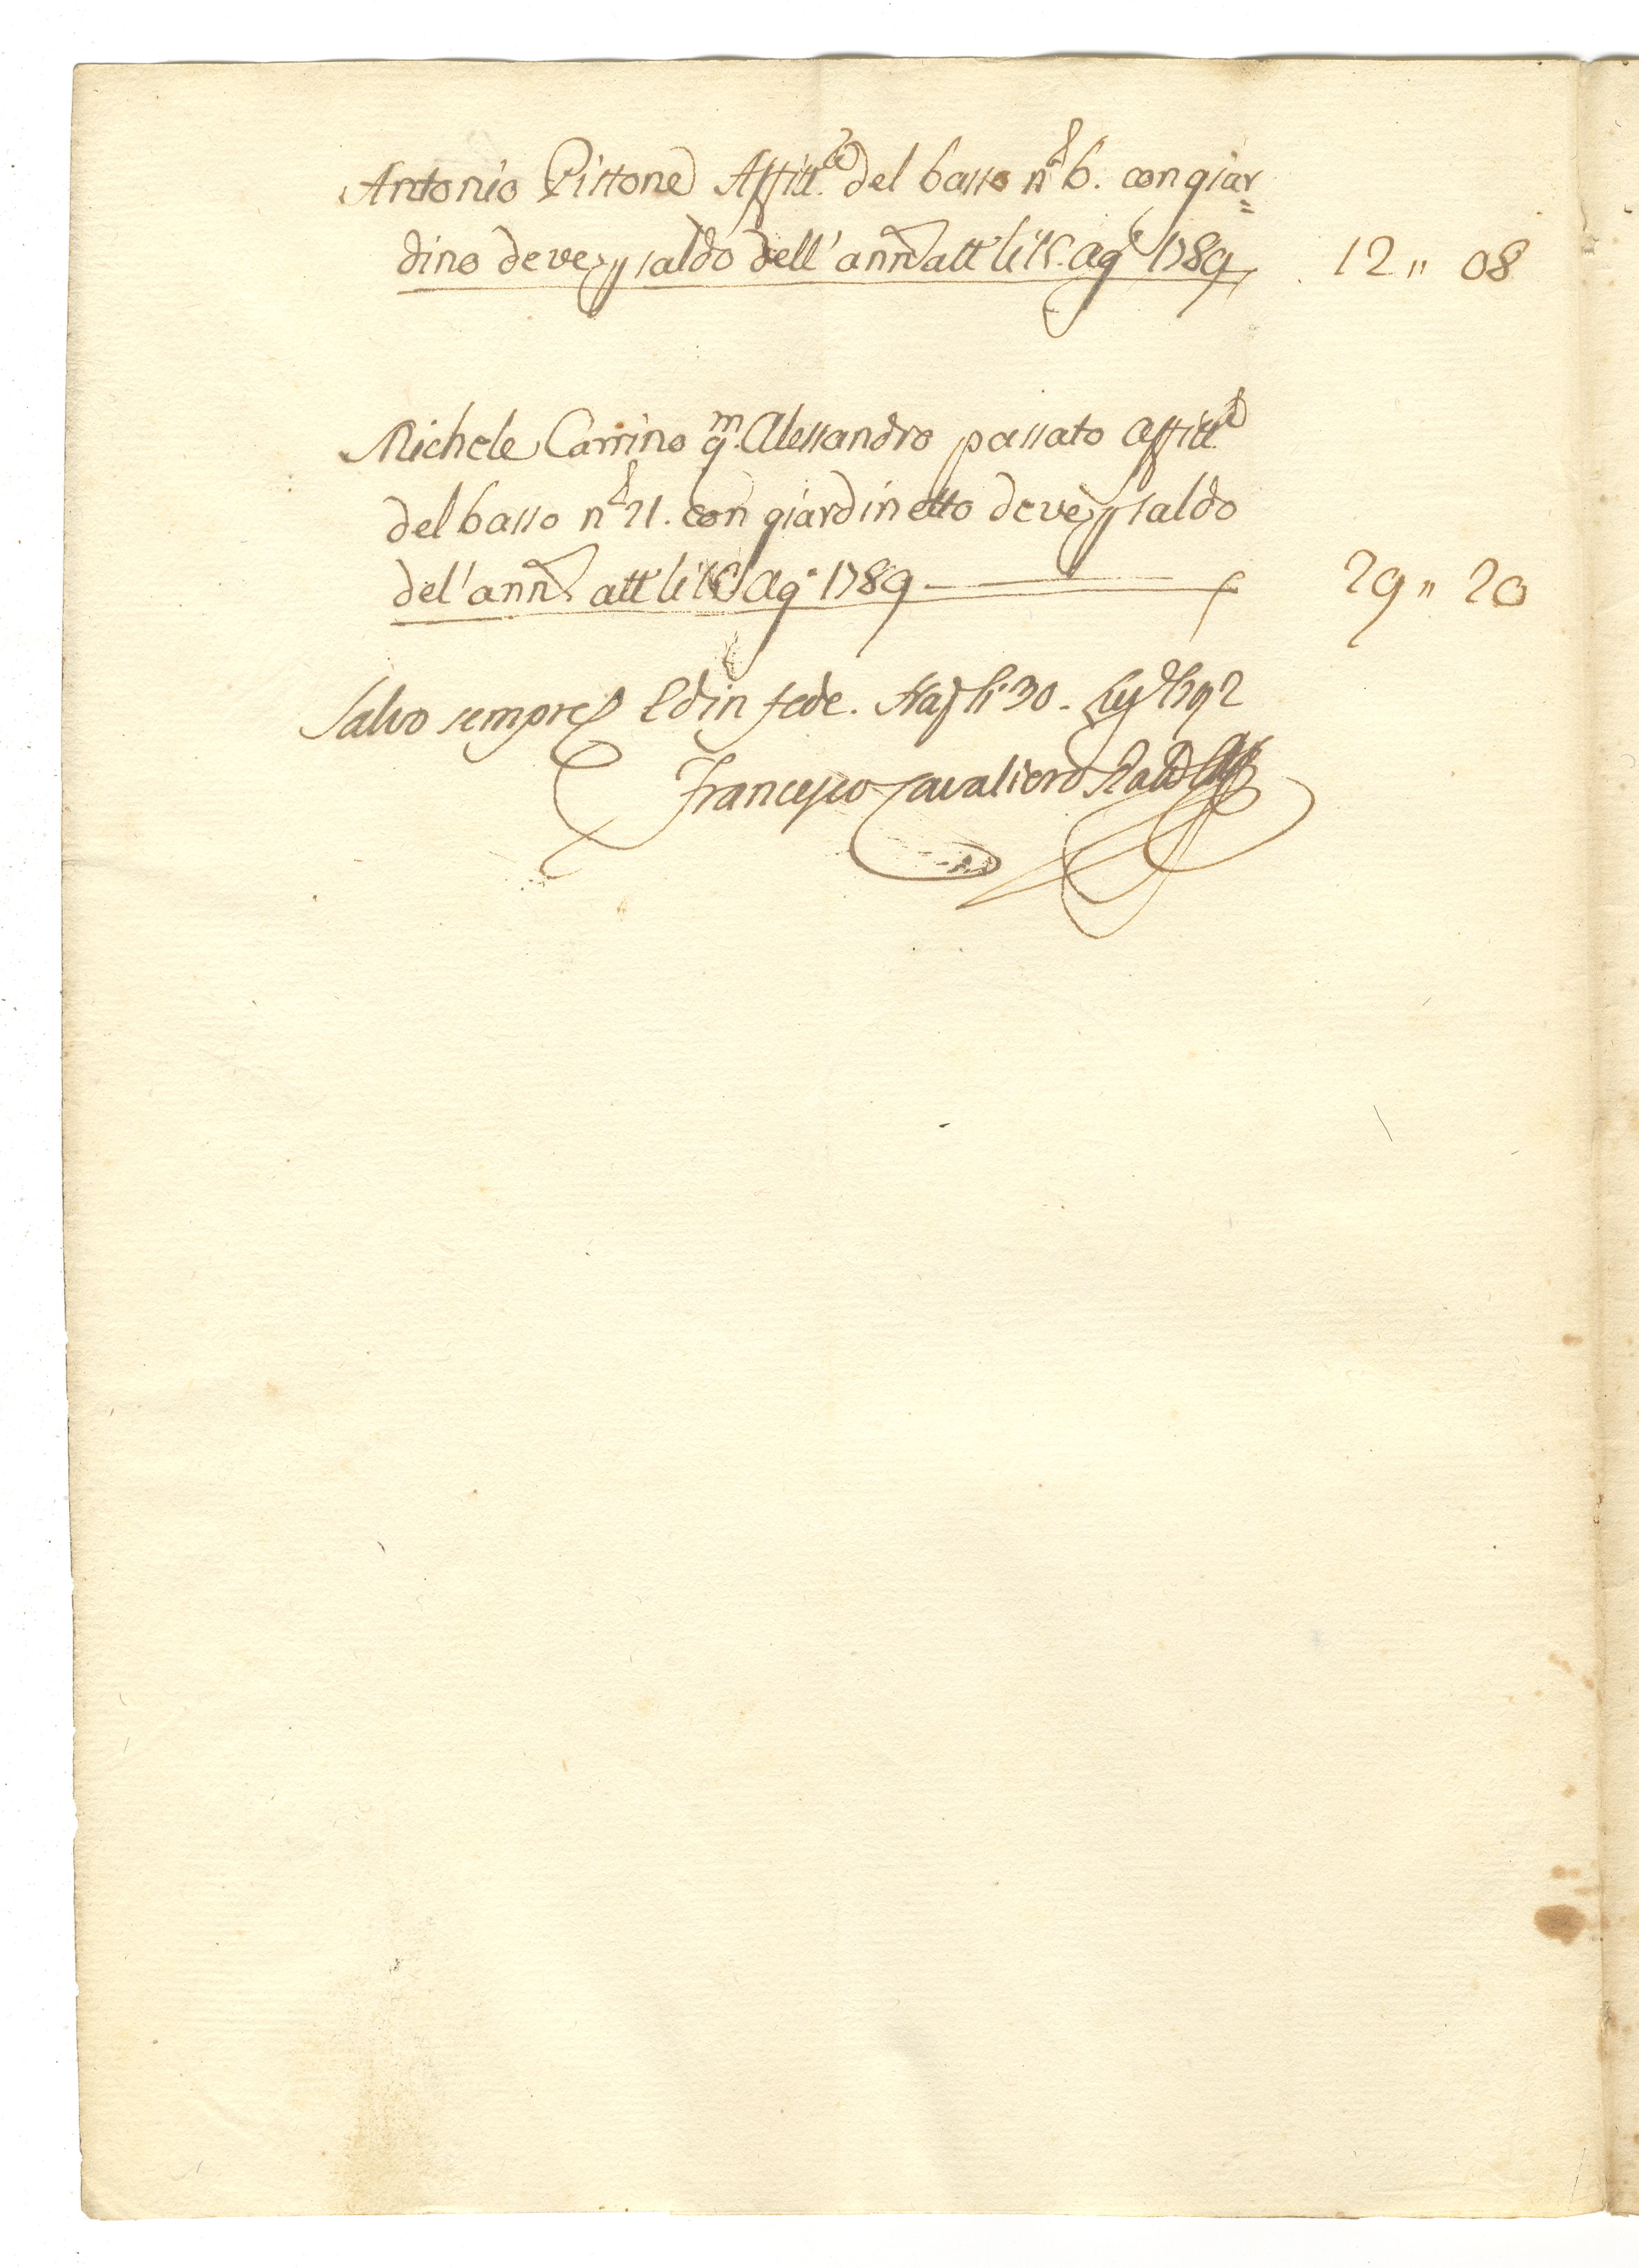 Antonio Pistone Affitt.re del basso n.° 6. con giar=
dino deve p saldo dell' ann att' li 15. Ag.° 1789 12 " 08
Michele Carrino q.m Alessandro passato affitt.e
del basso n.° 21. con giardinetto deve p saldo
del' ann att' li 15 Ag.° 1789 29 " 20
Salvo sempre Ed in fede. Nap li 30. 1792
Francesco Cavaliero